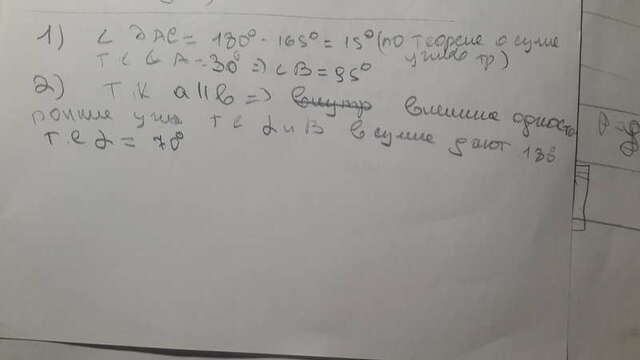 1) ∠ DAC = 180° - 165° = 15° (по теореме о сумме
углов тр)
Т С ∠ A = 30° => ∠B = 95°
2) Т.К a||b => внутр внешние одностo
ронние угл те α и В в сумме дают 180
т.е α = 70°